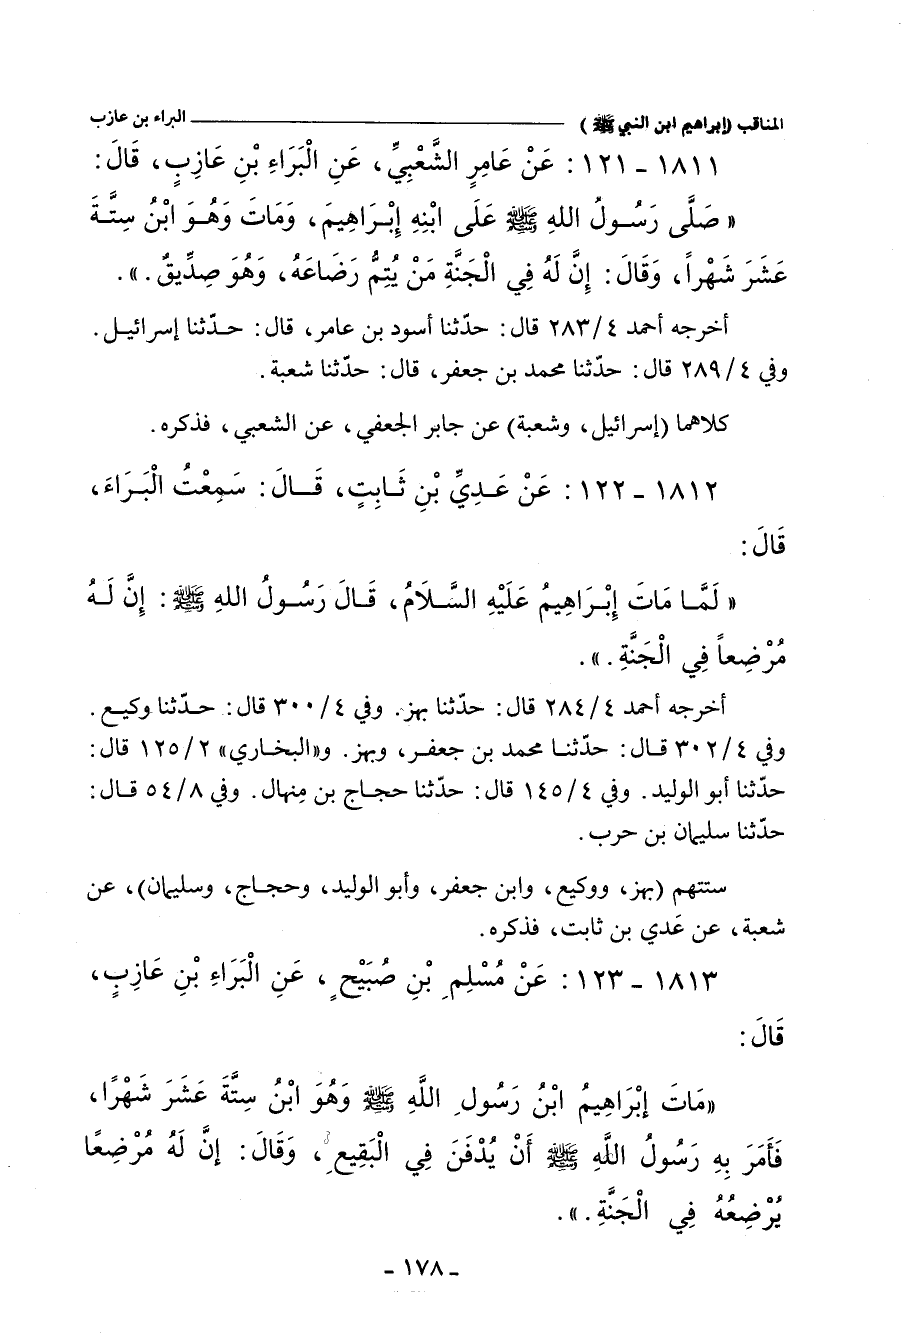 المناقب (إبراهيم ابن النبي ﷺ) ــــــــــ البراء بن عازب
١٨١١ - ١٢١ : عَنْ عَامِرٍ الشَّعْبِيِّ، عَنِ الْبَرَاءِ بْنِ عَازِبٍ، قَالَ:
« صَلَّى رَسُولُ اللهِ ﷺ عَلَى ابْنِهِ إِبْرَاهِيمَ، وَمَاتَ وَهُوَ ابْنُ سِتَّةَ
عَشَرَ شَهْراً، وَقَالَ: إِنَّ لَهُ فِي الْجَنَّةِ مَنْ يُتِمُّ رَضَاعَهُ، وَهُوَ صِدِّيقٌ.».
أخرجه أحمد ٢٨٣/٤ قال: حدّثنا أسود بن عامر، قال: حدّثنا إسرائيل.
وفي ٢٨٩/٤ قال: حدّثنا محمد بن جعفر، قال: حدّثنا شعبة.
كلاهما (إسرائيل، وشعبة) عن جابر الجعفي، عن الشعبي، فذكره.
١٨١٢ - ١٢٢ : عَنْ عَدِيِّ بْنِ ثَابِتٍ، قَالَ: سَمِعْتُ الْبَرَاءَ،
قَالَ:
« لَمَّا مَاتَ إِبْرَاهِيمُ عَلَيْهِ السَّلَامُ، قَالَ رَسُولُ اللهِ ﷺ : إِنَّ لَهُ
مُرْضِعاً فِي الْجَنَّةِ.».
أخرجه أحمد ٢٨٤/٤ قال: حدّثنا بهز. وفي ٣٠٠/٤ قال: حدّثنا وكيع.
وفي ٣٠٢/٤ قال: حدّثنا محمد بن جعفر، وبهز. و«البخاري» ١٢٥/٢ قال:
حدّثنا أبو الوليد. وفي ١٤٥/٤ قال: حدّثنا حجاج بن مِنهال. وفي ٥٤/٨ قال:
حدّثنا سليمان بن حرب.
ستتهم (بهز، ووكيع، وابن جعفر، وأبو الوليد، وحجاج، وسليمان)، عن
شعبة، عن عَدي بن ثابت، فذكره.
١٨١٣ - ١٢٣ : عَنْ مُسْلِمِ بْنِ صُبَيْحٍ، عَنِ الْبَرَاءِ بْنِ عَازِبٍ،
قَالَ:
«مَاتَ إِبْرَاهِيمُ ابْنُ رَسُولِ اللَّهِ ﷺ وَهُوَ ابْنُ سِتَّةَ عَشَرَ شَهْرًا،
فَأَمَرَ بِهِ رَسُولُ اللَّهِ ﷺ أَنْ يُدْفَنَ فِي الْبَقِيعِ، وَقَالَ: إِنَّ لَهُ مُرْضِعًا
يُرْضِعُهُ فِي الْجَنَّةِ.».
- ١٧٨ -